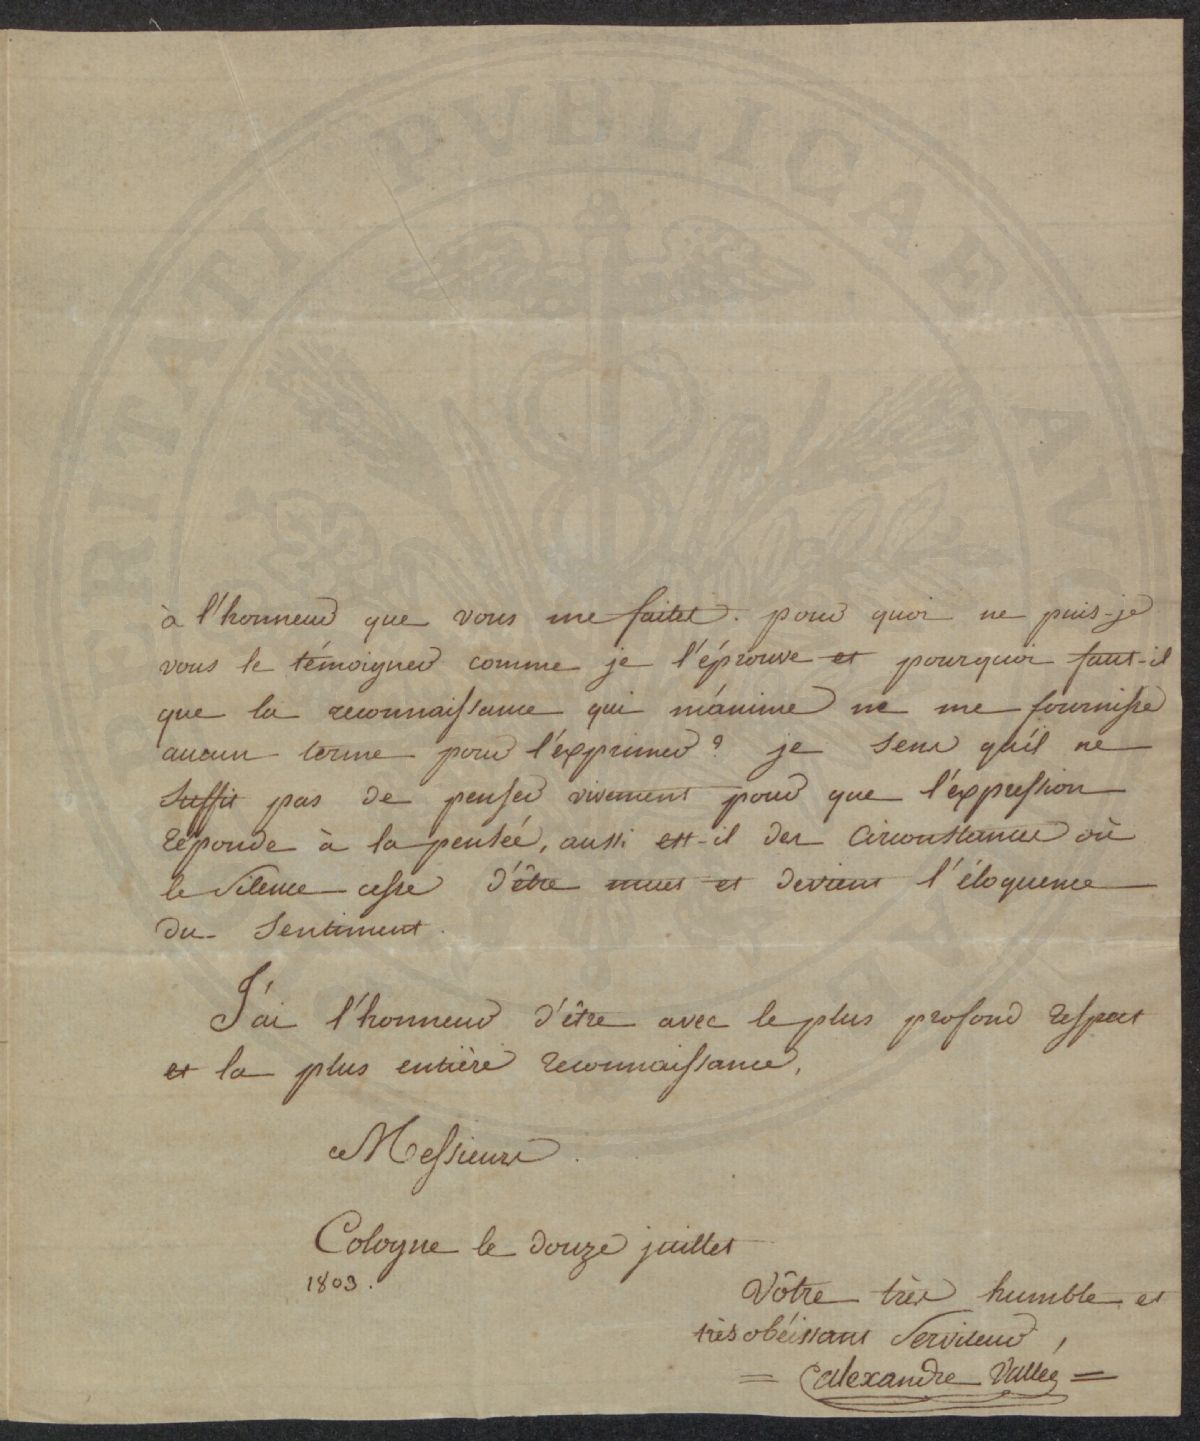 à l'honneur que vous me faites. pour quoi ne puis-je
vous le témoigner comme je l'éprouve et pourquoi faut-il
que la reconnaissance qui m'anime ne me fournisse
aucun terme pour l'exprimer? je sens qu'il ne
suffit pas de penser vivement pour que l'expression
réponde à la pensée, aussi est-il des circonstances où
le silence cesse d'être muet et devient l'éloquence
du sentiment.
J'ai l'honneur d'être avec le plus profond respect
et la plus entière reconnaissance,
Messieurs
Cologne le douze juillet
1803.
Vôtre très humble et
très obéissant Serviteur,
= Alexandre Vallée =
PVBLICAE